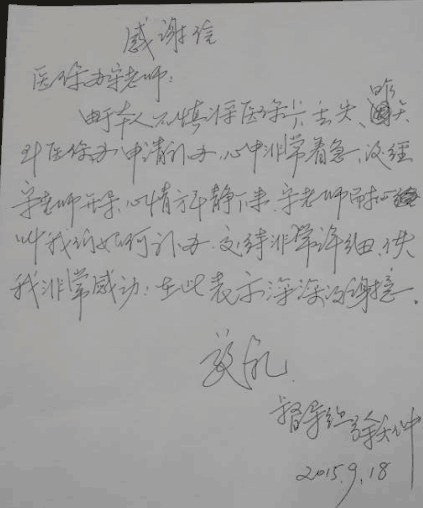 感谢信
医保办宋老师：
由于本人不慎将医保卡丢失、昨天
到医保办申请补办，心中非常着急，没经
宋老师开导，心情方平静下来，宋老师
叫我 如何补办，交待非常详细，使
我非常感动：在此表示深深的谢意。
致礼
督导组
2015.9.18